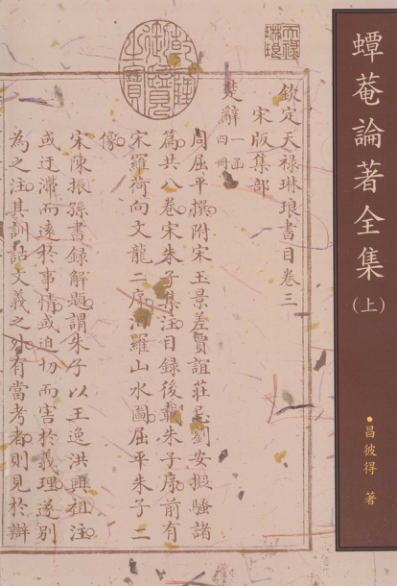 蟫菴論著全集
(上)
•昌彼得 著
天祿
琳琅
乾隆
御覽
之寶
欽定天祿琳琅書目卷三
宋版集部
楚辭 一函四冊
周屈平撰附宋玉景差賈誼莊忌劉安擬騷諸
篇共八卷宋朱子集注目錄後載朱子序前有
宋羅荷向文龍二序汨羅山水圖屈平朱子二
像
宋陳振孫書錄解題謂朱子以王逸洪興祖注
或迂滯而遠於事情或迫切而害於義理遂別
為之注其訓詁文義之外有當考者則見於辯